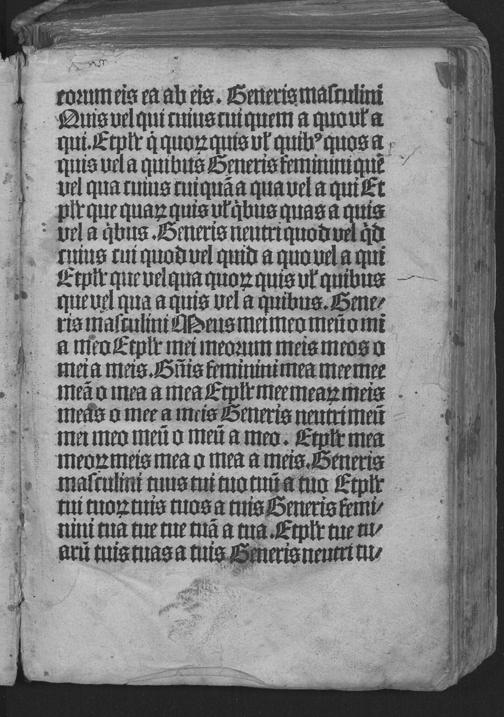 eorum eis ea ab eis. Generis masculini
Quis vel qui cuius cui quem a quo vl̓ a
qui. Et plr̓ q̇ quoꝝ quis vl̓ quibꝰ quos a
quis vel a quibus Generis feminini quē
vel qua cuius cui quā a qua vel a qui Et
plr̓ que quaꝝ quis vl̓ q̇bus quas a quis
vel a q̇bus. Generis neutri quod vel q̇d
cuius cui quod vel quid a quo vel a qui
Et plr̓ que vel qua quoꝝ quis vl̓ quibus
que vel qua a quis vel a quibus. Gene⸗
ris masculini Meus mei meo meū o mi
a meo Et plr̓ mei meorum meis meos o
mei a meis. Gn̄is feminini mea mee mee
meā o mea a mea Et plr̓ mee meaꝝ meis
meas o mee a meis Generis neutri meū
mei meo meū o meū a meo. Et plr̓ mea
meoꝝ meis mea o mea a meis. Generis
masculini tuus tui tuo tuū a tuo Et plr̓
tui tuoꝝ tuis tuos a tuis Generis femi⸗
nini tua tue tue tuā a tua. Et plr̓ tue tu⸗
arū tuis tuas a tuis Generis neutri tu⸗